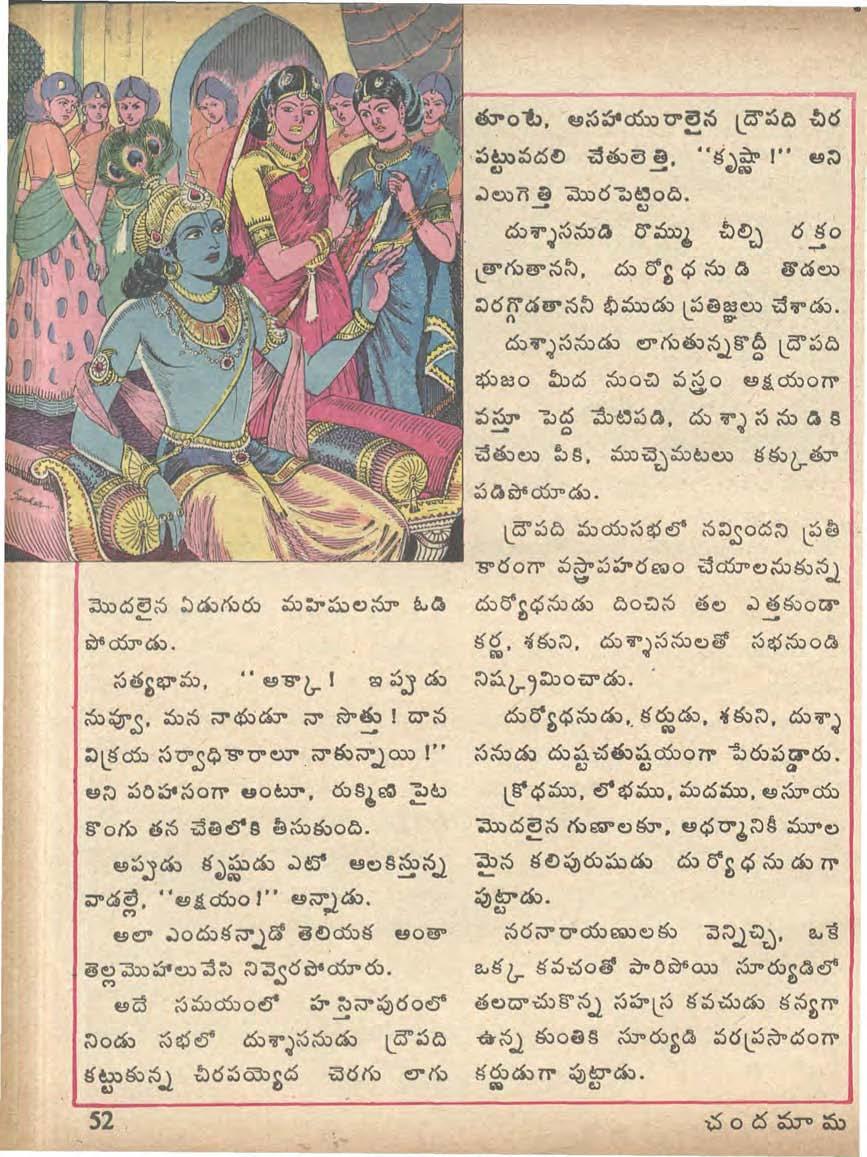 Sankar
మొదలైన ఏడుగురు మహిషులనూ ఓడి
పోయాడు.
సత్యభామ, ‘‘అక్కా! ఇప్పుడు
నువ్వూ, మన నాథుడూ నా సొత్తు! దాన
విక్రయ సర్వాధికారాలూ నాకున్నాయి!’’
అని పరిహాసంగా అంటూ, రుక్మిణి పైట
కొంగు తన చేతిలోకి తీసుకుంది.
అప్పుడు కృష్ణుడు ఎటో ఆలకిస్తున్న
వాడల్లే, ‘‘అక్షయం!’’ అన్నాడు.
అలా ఎందుకన్నాడో తెలియక అంతా
తెల్లమొహాలు వేసి నివ్వెరపోయారు.
అదే సమయంలో హస్తినాపురంలో
నిండు సభలో దుశ్శాసనుడు ద్రౌపది
కట్టుకున్న చీరపయ్యెద చెరగు లాగు
తూంటే, అసహాయురాలైన ద్రౌపది చీర
పట్టువదలి చేతులెత్తి, ‘‘కృష్ణా!’’ అని
ఎలుగెత్తి మొరపెట్టింది.
దుశ్శాసనుడి రొమ్ము చీల్చి రక్తం
త్రాగుతాననీ, దుర్యోధనుడి తొడలు
విరగ్గొడతాననీ భీముడు ప్రతిజ్ఞలు చేశాడు.
దుశ్శాసనుడు లాగుతున్నకొద్దీ ద్రౌపది
భుజం మీద నుంచి వస్త్రం అక్షయంగా
వస్తూ పెద్ద మేటిపడి, దుశ్శాసనుడికి
చేతులు పీకి, ముచ్చెమటలు కక్కుతూ
పడిపోయాడు.
ద్రౌపది మయసభలో నవ్విందని ప్రతీ
కారంగా వస్త్రాపహరణం చేయాలనుకున్న
దుర్యోధనుడు దించిన తల ఎత్తకుండా
కర్ణ, శకుని, దుశ్శాసనులతో సభనుండి
నిష్క్రమించాడు.
దుర్యోధనుడు, కర్ణుడు, శకుని, దుశ్శా
సనుడు దుష్టచతుష్టయంగా పేరుపడ్డారు.
క్రోధము, లోభము, మదము, అసూయ
మొదలైన గుణాలకూ, అధర్మానికీ మూల
మైన కలిపురుషుడు దుర్యోధనుడుగా
పుట్టాడు.
నరనారాయణులకు వెన్నిచ్చి, ఒకే
ఒక్క కవచంతో పారిపోయి సూర్యుడిలో
తలదాచుకొన్న సహస్ర కవచుడు కన్యగా
ఉన్న కుంతికి సూర్యుడి వరప్రసాదంగా
కర్ణుడుగా పుట్టాడు.
52
చందమామ